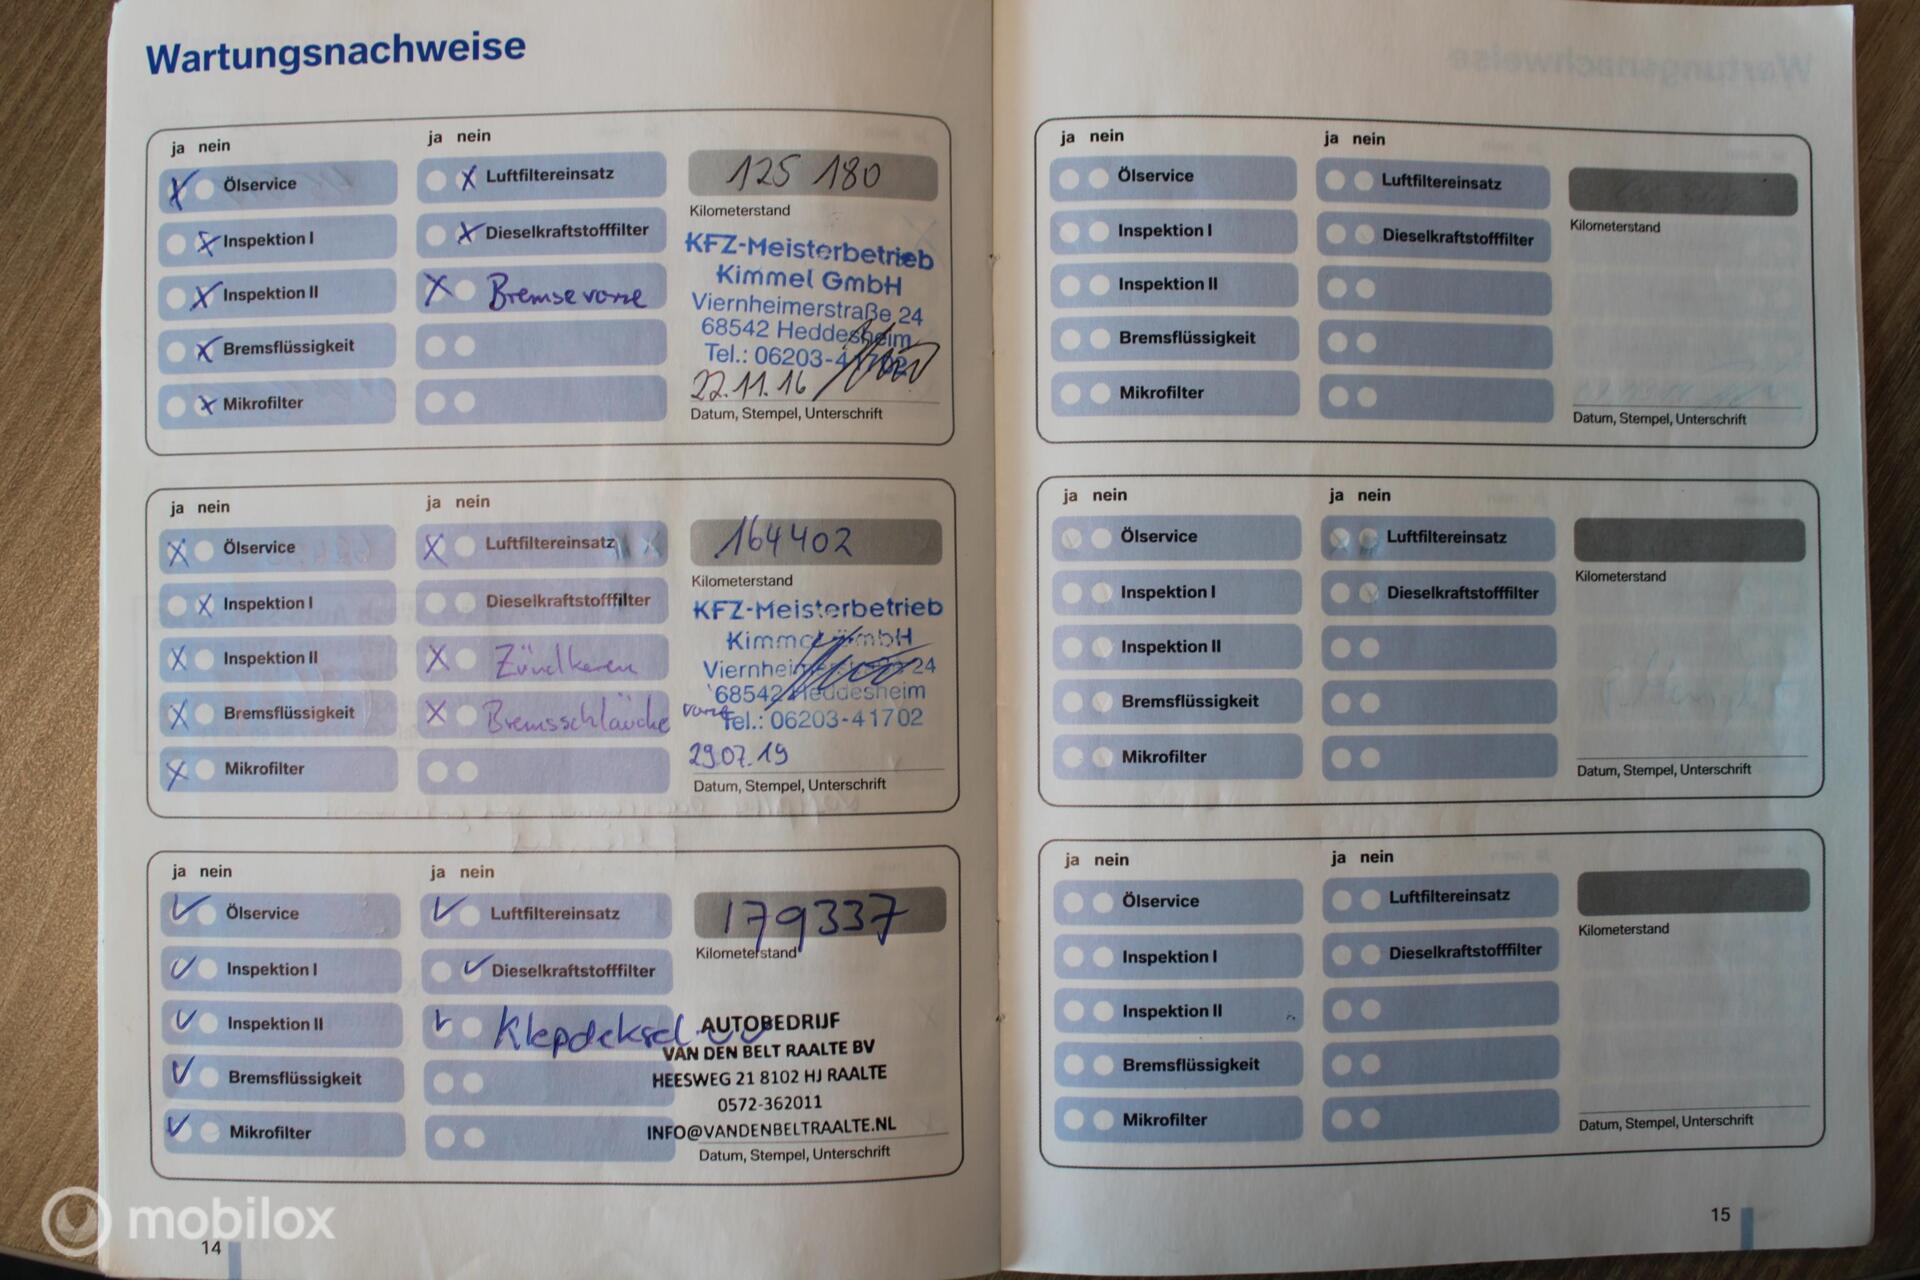 Wartungsnachweise
ja nein
ja nein
Ölservice
Luftfiltereinsatz
125 180
Kilometerstand
Inspektion I
Dieselkraftstofffilter
KFZ-Meisterbetrieb
Kimmel GmbH
Inspektion II
Bremse vorne
Viernheimerstraße 24
68542 Heddesheim
Bremsflüssigkeit
Tel.: 06203-41702
22.11.16
Mikrofilter
Datum, Stempel, Unterschrift
ja nein
ja nein
Ölservice
Luftfiltereinsatz
164402
Kilometerstand
Inspektion I
Dieselkraftstofffilter
KFZ-Meisterbetrieb
Kimmel GmbH
Inspektion II
Zündkeren
Viernheimerstraße 24
68542 Heddesheim
Bremsflüssigkeit
Bremsschläuche vorne
Tel.: 06203-41702
29.07.19
Mikrofilter
Datum, Stempel, Unterschrift
ja nein
ja nein
Ölservice
Luftfiltereinsatz
179337
Kilometerstand
Inspektion I
Dieselkraftstofffilter
Inspektion II
Klepdeksel
AUTOBEDRIJF
VAN DEN BELT RAALTE BV
HEESWEG 21 8102 HJ RAALTE
Bremsflüssigkeit
0572-362011
INFO@VANDENBELTRAALTE.NL
Mikrofilter
Datum, Stempel, Unterschrift
14
ja nein
ja nein
Ölservice
Luftfiltereinsatz
Kilometerstand
Inspektion I
Dieselkraftstofffilter
Inspektion II
Bremsflüssigkeit
Mikrofilter
Datum, Stempel, Unterschrift
ja nein
ja nein
Ölservice
Luftfiltereinsatz
Kilometerstand
Inspektion I
Dieselkraftstofffilter
Inspektion II
Bremsflüssigkeit
Mikrofilter
Datum, Stempel, Unterschrift
ja nein
ja nein
Ölservice
Luftfiltereinsatz
Kilometerstand
Inspektion I
Dieselkraftstofffilter
Inspektion II
Bremsflüssigkeit
Mikrofilter
Datum, Stempel, Unterschrift
15
mobilox